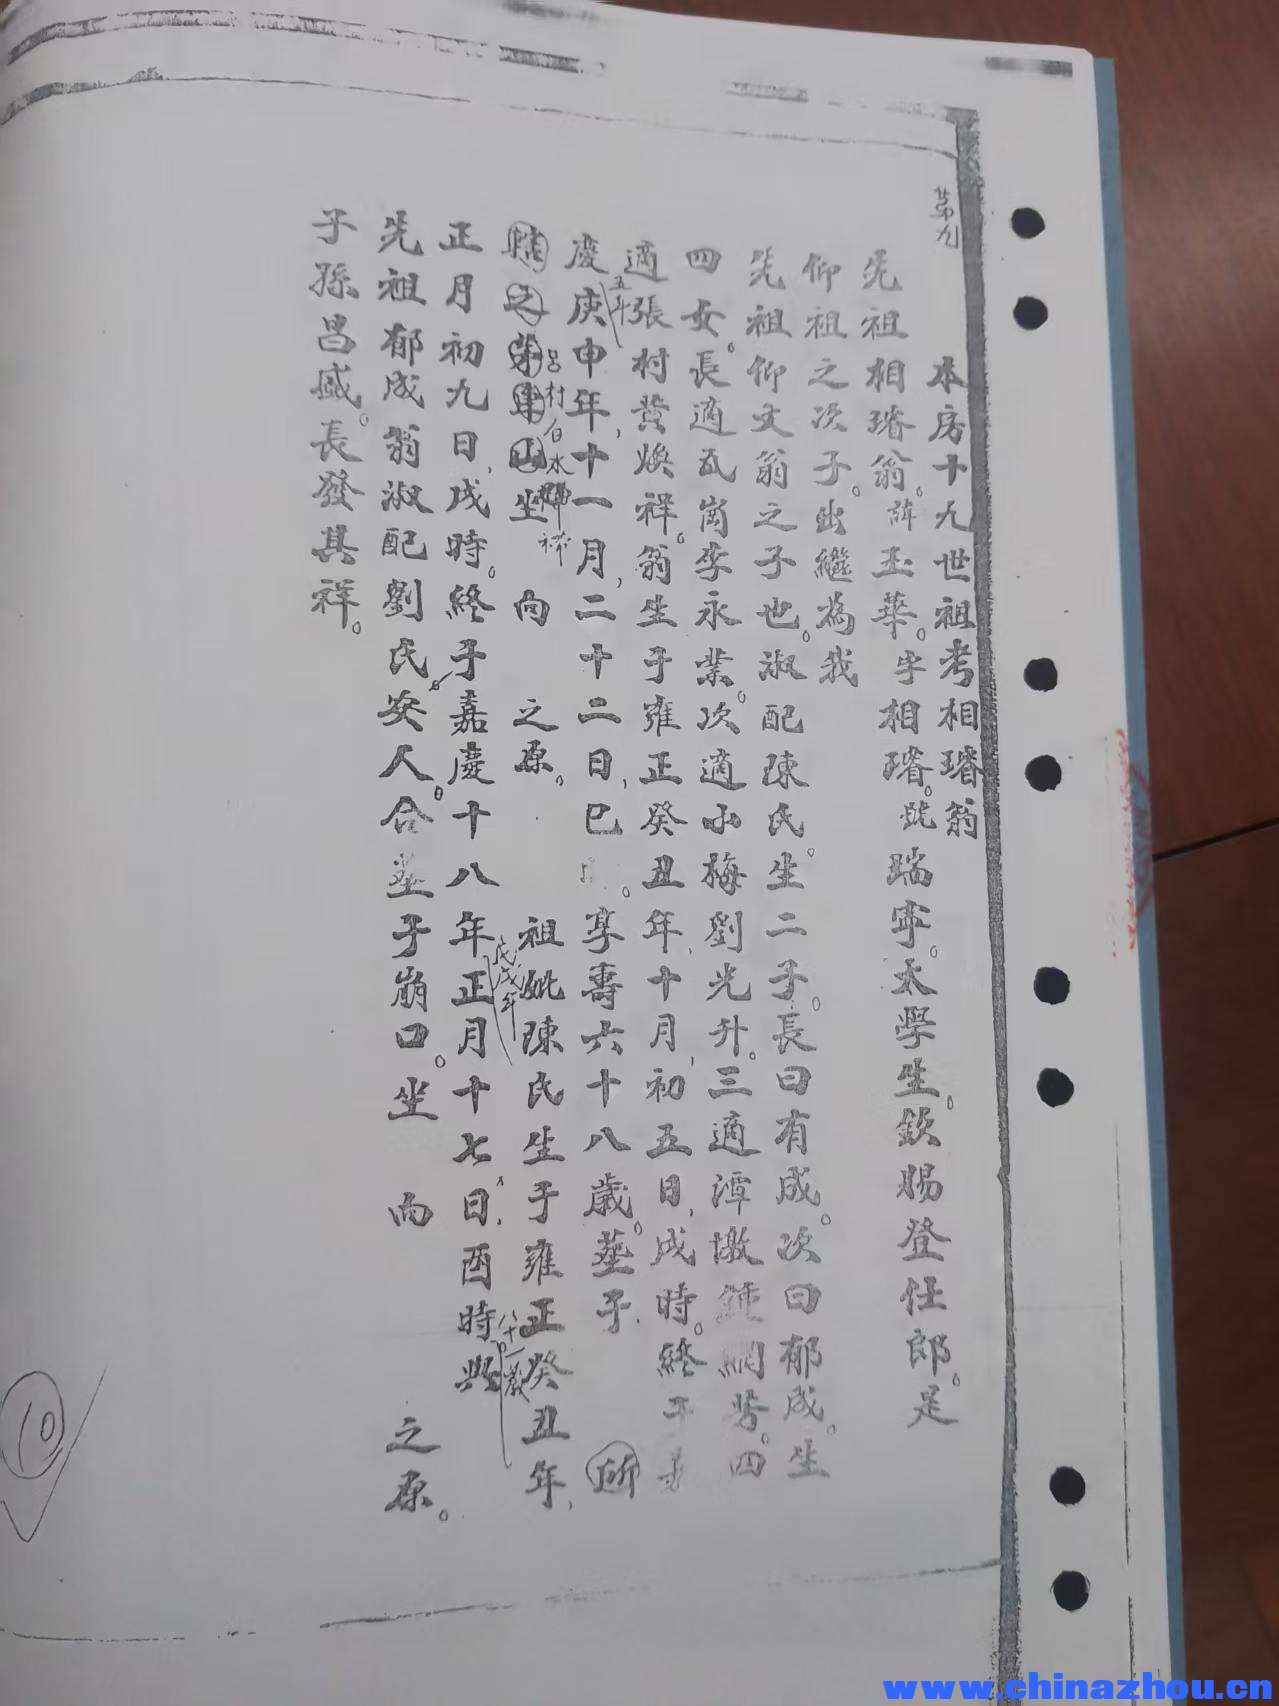 第九
本房十九世祖考相璿翁
先祖相璿翁。諱玉華。字相璿。號瑞寧。太學生。欽賜登仕郎。是
仰祖之次子。出繼為我
先祖仰文翁之子也。淑配陳氏。生二子。長曰有成。次曰郁成。生
四女。長適瓦崗李永業。次適小梅劉光升。三適潭墩鍾網芳。四
適張村黃煥祥。翁生于雍正癸丑年，十月，初五日，戌時。終于嘉
五年
慶庚申年，十一月，二十二日，巳 。享壽六十八歲。塟于 所
呂村白水
轄之 坐 向 之原。 祖妣陳氏生于雍正癸丑年，
戊戌年
八十一歲
正月初九日，戌時。終于嘉慶十八年正月十七日，酉時與
先祖郁成翁淑配劉氏安人。合塟于崩口。坐 向 之原。
子孫昌盛。長發其祥。
10
www.chinazhou.cn